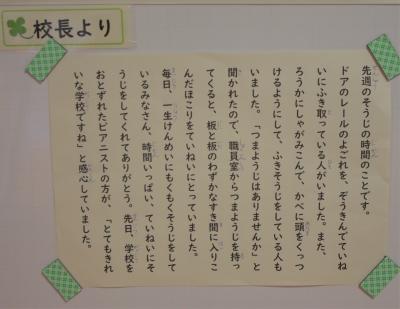 校長より
先週のそうじの時間のことです。
ドアのレールのよごれを、ぞうきんでていね
いにふき取っている人がいました。また、
ろうかにしゃがみこんで、かべに頭をくっつ
けるようにして、ふきそうじをしている人も
いました。「つまようじはありませんか」と
聞かれたので、職員室からつまようじを持っ
てくると、板と板のわずかなすき間に入りこ
んだほこりをていねいにとっていました。
毎日、一生けんめいにもくもくそうじをして
いるみなさん、時間いっぱい、ていねいにそ
うじをしてくれてありがとう。先日、学校を
おとずれたピアニストの方が、「とてもきれ
いな学校ですね」と感心していました。